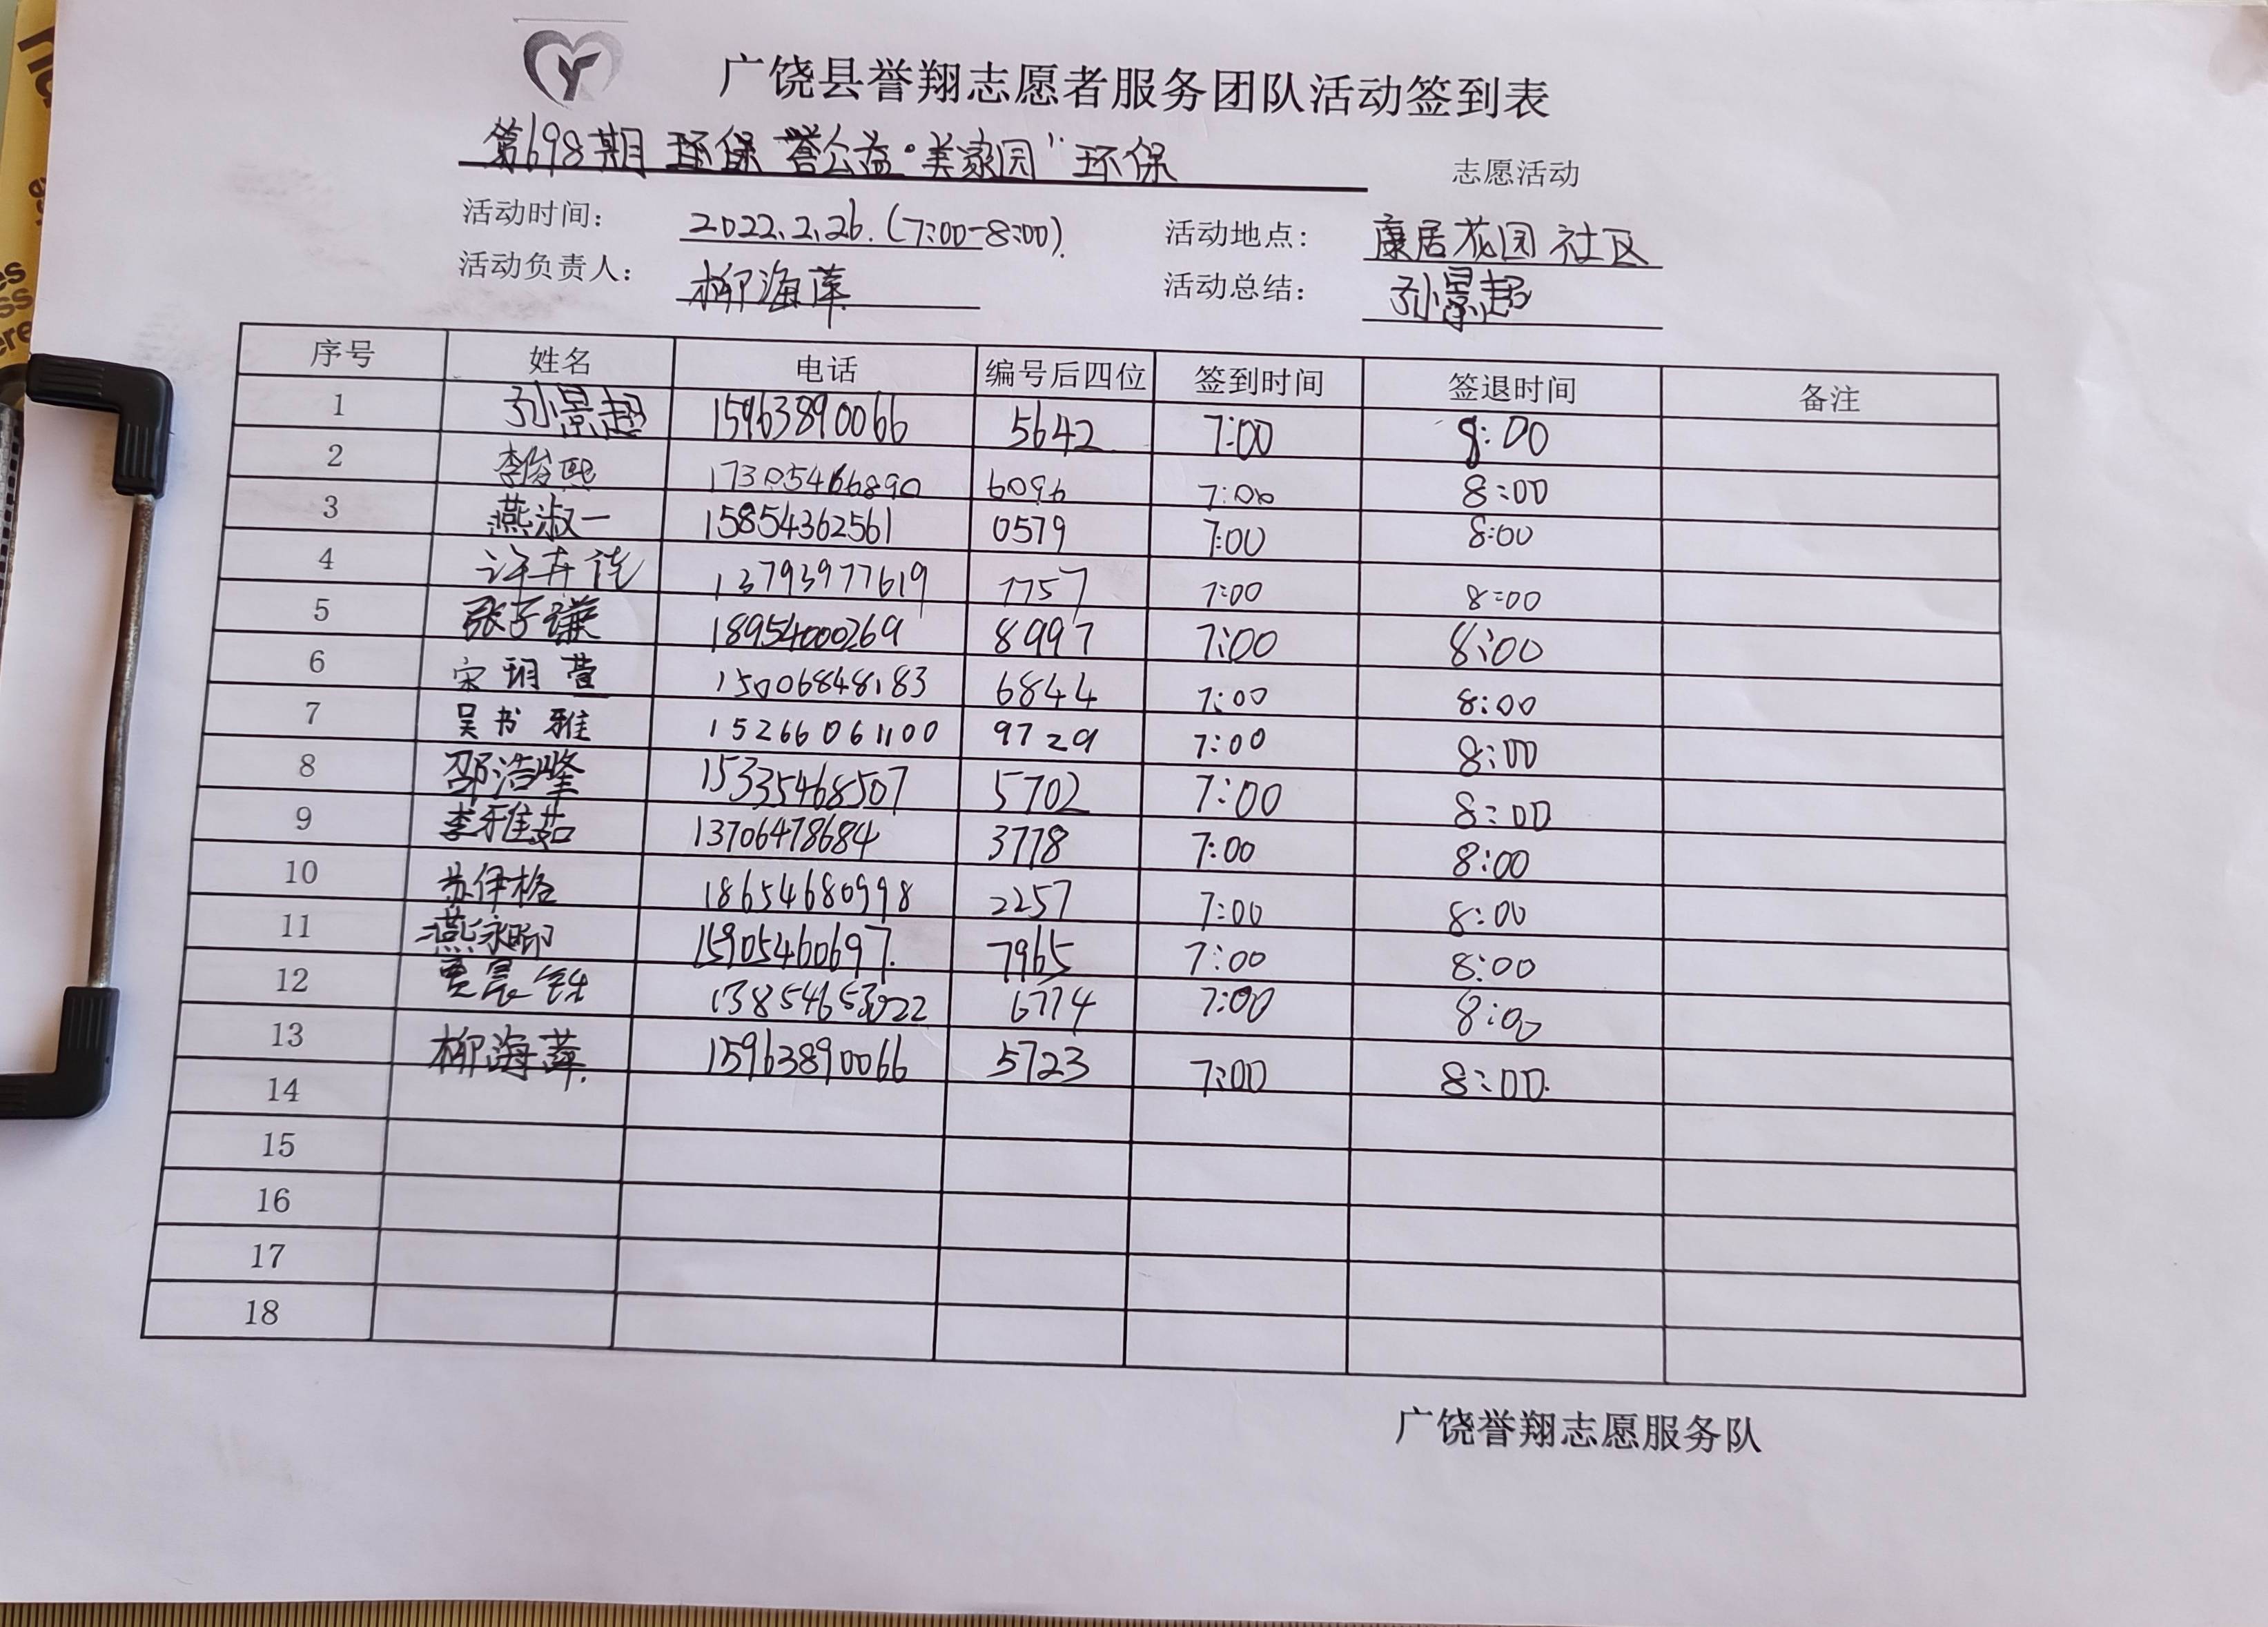 广饶县誉翔志愿者服务团队活动签到表
第698期 环保 誉公益·美家园" 环保 志愿活动
活动时间: 2022.2.26.(7:00-8:00). 活动地点: 康居花园社区
活动负责人: 柳海萍 活动总结: 孙景超
序号 姓名 电话 编号后四位 签到时间 签退时间 备注
1 孙景超 15963890066 5642 7:00 8:00
2 李俊熙 17305466890 6096 7:00 8:00
3 燕淑一 15854362561 0579 7:00 8:00
4 13793977619 7757 7:00 8:00
5 张子谦 18954000269 8997 7:00 8:00
6 宋玥萱 15006848183 6844 7:00 8:00
7 吴书雅 15266061100 9729 7:00 8:00
8 邵浩峰 15335468507 5702 7:00 8:00
9 李雅茹 13706478684 3778 7:00 8:00
10 苏伊格 18654680998 2257 7:00 8:00
11 15905460697. 7965 7:00 8:00
12 13854653022 6774 7:00 8:00
13 柳海萍. 15963890066 5723 7:00 8:00.
14
15
16
17
18
广饶誉翔志愿服务队